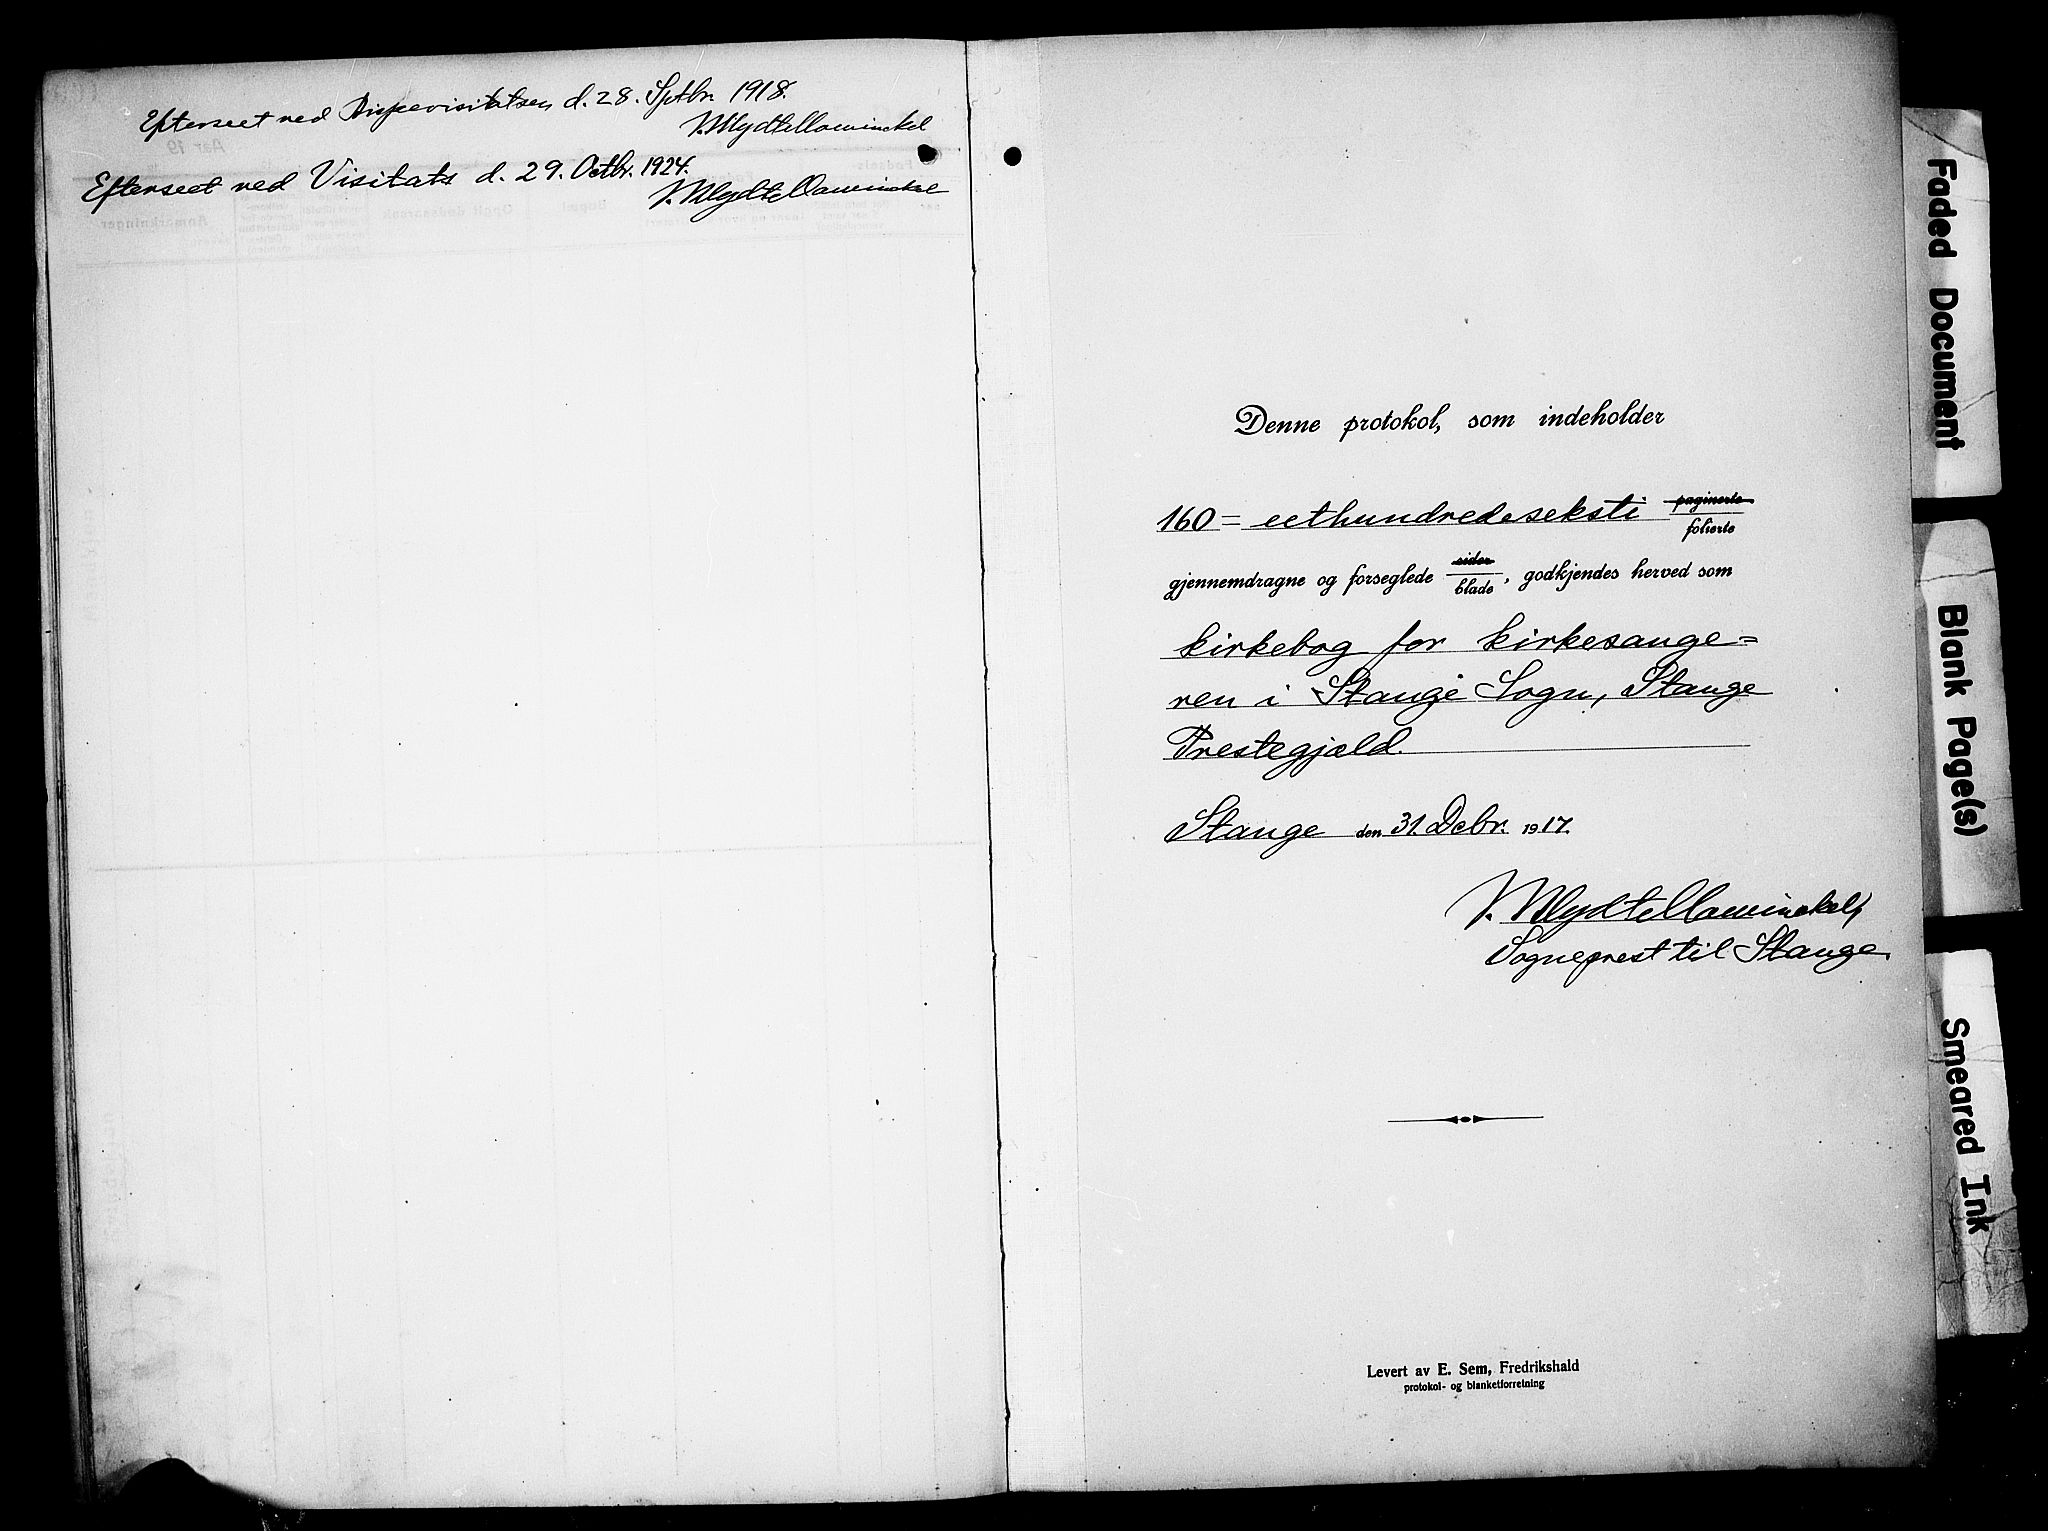 Efterseet ved Bispevisitatsen d. 28. Sptbr. 1918.
Efterseet ved Visitats d. 29. Octbr. 1924.
Denne protokol, som indeholder
160 = eethundredeseksti paginerte
folierte
gjennemdragne og forseglede sider
blade, godkjendes herved som
kirkebog for kirkesange=
ren i Stange Sogn, Stange
Prestegjæld.
Stange den 31. Decbr. 1917.
Sogneprest til Stange.
Levert av E. Sem, Fredrikshald
protokol- og blanketforretning
Faded Document
Blank Page(s)
Smeared Ink